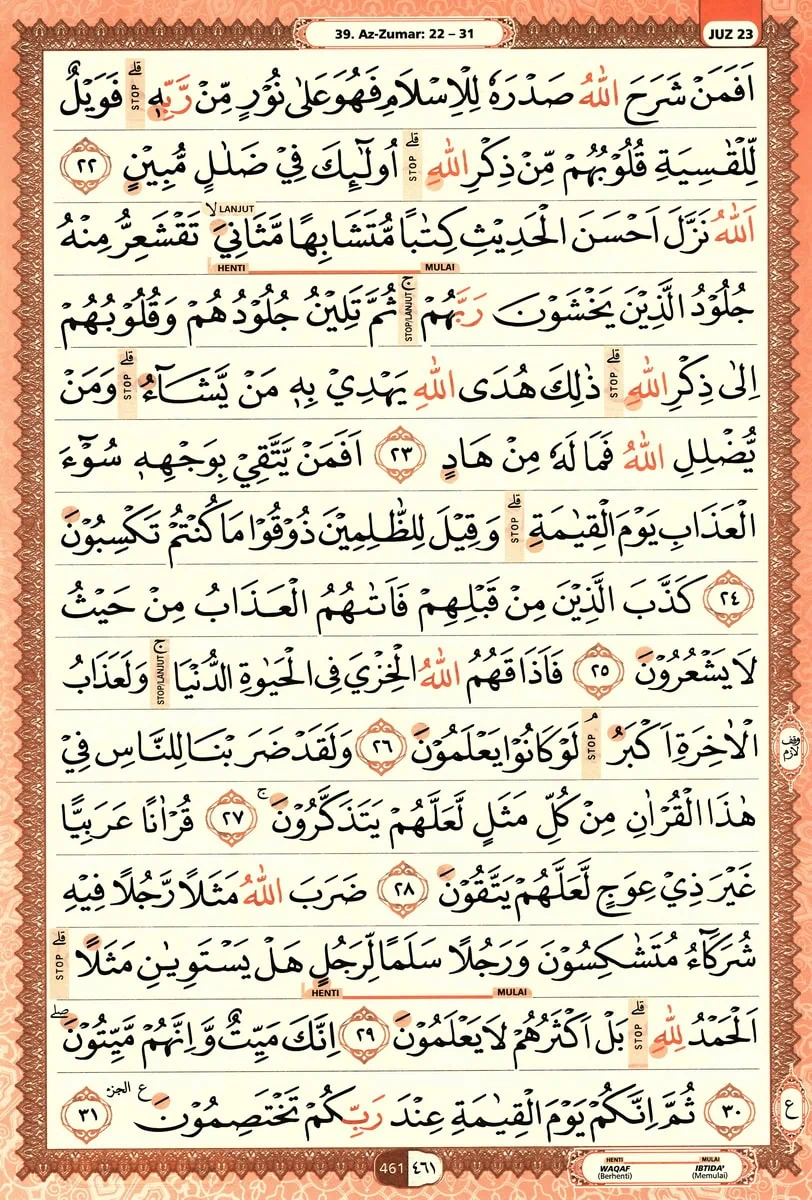 39. Az-Zumar: 22 – 31
JUZ 23
اَفَمَنْ شَرَحَ اللّٰهُ صَدْرَهٗ لِلْاِسْلَامِ فَهُوَ عَلٰى نُوْرٍ مِّنْ رَّبِّهٖۗ STOP فَوَيْلٌ
لِّلْقٰسِيَةِ قُلُوْبُهُمْ مِّنْ ذِكْرِ اللّٰهِ ۗ STOP اُولٰۤىِٕكَ فِيْ ضَلٰلٍ مُّبِيْنٍ ٢٢
LANJUT
اَللّٰهُ نَزَّلَ اَحْسَنَ الْحَدِيْثِ كِتٰبًا مُّتَشَابِهًا مَّثَانِيَۙ تَقْشَعِرُّ مِنْهُ
MULAI HENTI
جُلُوْدُ الَّذِيْنَ يَخْشَوْنَ رَبَّهُمْ ۚ STOP/LANJUT ثُمَّ تَلِيْنُ جُلُوْدُهُمْ وَقُلُوْبُهُمْ
اِلٰى ذِكْرِ اللّٰهِ ۗ STOP ذٰلِكَ هُدَى اللّٰهِ يَهْدِيْ بِهٖ مَنْ يَّشَاۤءُ ۗ STOP وَمَنْ
يُّضْلِلِ اللّٰهُ فَمَا لَهٗ مِنْ هَادٍ ٢٣ اَفَمَنْ يَّتَّقِيْ بِوَجْهِهٖ سُوْۤءَ
الْعَذَابِ يَوْمَ الْقِيٰمَةِ ۗ STOP وَقِيْلَ لِلظّٰلِمِيْنَ ذُوْقُوْا مَا كُنْتُمْ تَكْسِبُوْنَ
٢٤ كَذَّبَ الَّذِيْنَ مِنْ قَبْلِهِمْ فَاَتٰىهُمُ الْعَذَابُ مِنْ حَيْثُ
لَا يَشْعُرُوْنَ ٢٥ فَاَذَاقَهُمُ اللّٰهُ الْخِزْيَ فِى الْحَيٰوةِ الدُّنْيَا ۚ STOP/LANJUT وَلَعَذَابُ
الْاٰخِرَةِ اَكْبَرُ ۘ STOP لَوْ كَانُوْا يَعْلَمُوْنَ ٢٦ وَلَقَدْ ضَرَبْنَا لِلنَّاسِ فِيْ
وقف لازم
هٰذَا الْقُرْاٰنِ مِنْ كُلِّ مَثَلٍ لَّعَلَّهُمْ يَتَذَكَّرُوْنَۚ ٢٧ قُرْاٰنًا عَرَبِيًّا
غَيْرَ ذِيْ عِوَجٍ لَّعَلَّهُمْ يَتَّقُوْنَ ٢٨ ضَرَبَ اللّٰهُ مَثَلًا رَّجُلًا فِيْهِ
شُرَكَاۤءُ مُتَشٰكِسُوْنَ وَرَجُلًا سَلَمًا لِّرَجُلٍ هَلْ يَسْتَوِيٰنِ مَثَلًا ۗ STOP
MULAI HENTI
اَلْحَمْدُ لِلّٰهِ ۗ STOP بَلْ اَكْثَرُهُمْ لَا يَعْلَمُوْنَ ٢٩ اِنَّكَ مَيِّتٌ وَّاِنَّهُمْ مَّيِّتُوْنَۖ
٣٠ ثُمَّ اِنَّكُمْ يَوْمَ الْقِيٰمَةِ عِنْدَ رَبِّكُمْ تَخْتَصِمُوْنَ ࣖ الجزء ٣١
ع
461 ٤٦١
HENTI MULAI
WAQAF IBTIDA'
(Berhenti) (Memulai)